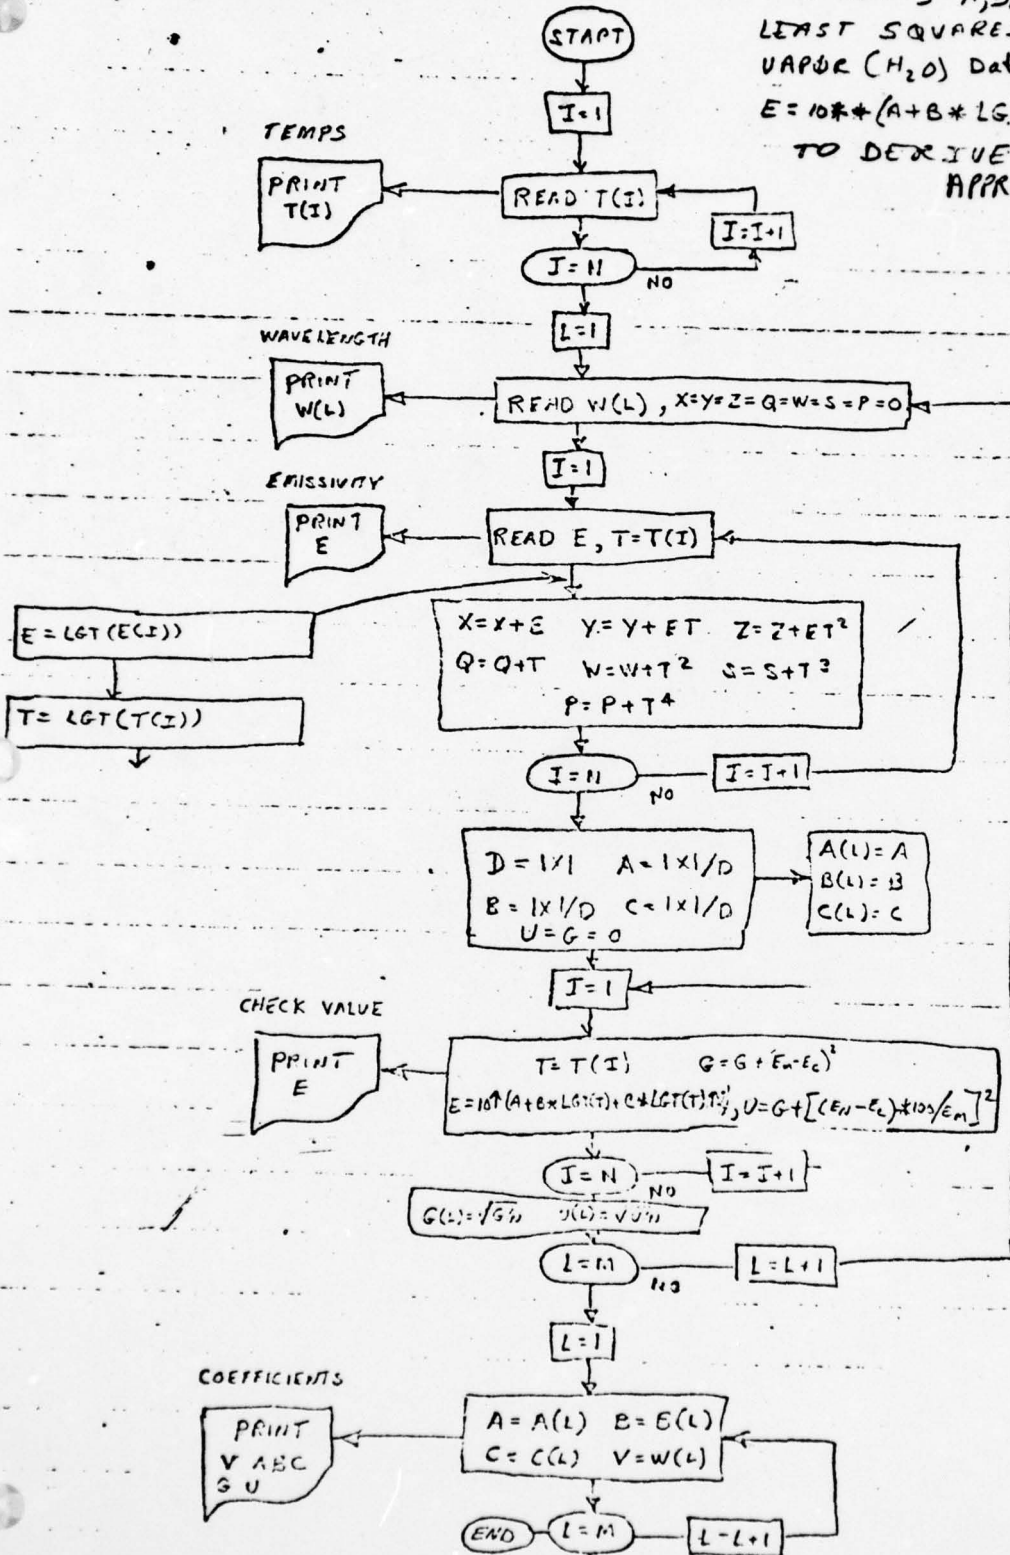 START
LEAST SQUARE
VAPOR (H₂O) Dat
E=10**(A+B*LG
TO DERIVE
APPR
I=1
TEMPS
PRINT
T(I)
READ T(I)
I=I+1
I=N
NO
L=1
WAVELENGTH
PRINT
W(L)
READ W(L), X=Y=Z=Q=W=S=P=0
I=1
EMISSIVITY
PRINT
E
READ E, T=T(I)
E=LGT(E(I))
T=LGT(T(I))
X=X+E Y=Y+ET Z=Z+ET²
Q=Q+T W=W+T² S=S+T³
P=P+T⁴
I=N
NO
I=I+1
D=|X| A=|X|/D
B=|X|/D C=|X|/D
U=G=0
A(L)=A
B(L)=B
C(L)=C
I=1
CHECK VALUE
PRINT
E
T=T(I) G=G+(Eₘ-E꜀)²
E=10↑(A+B*LGT(T)+C*LGT(T) U=G+[(Eₘ-E꜀)*100/Eₘ]²
I=N
NO
I=I+1
G(L)=√G/N U(L)=√U/N
L=M
NO
L=L+1
L=1
COEFFICIENTS
PRINT
V ABC
G U
A=A(L) B=B(L)
C=C(L) V=W(L)
END
L=M
L=L+1